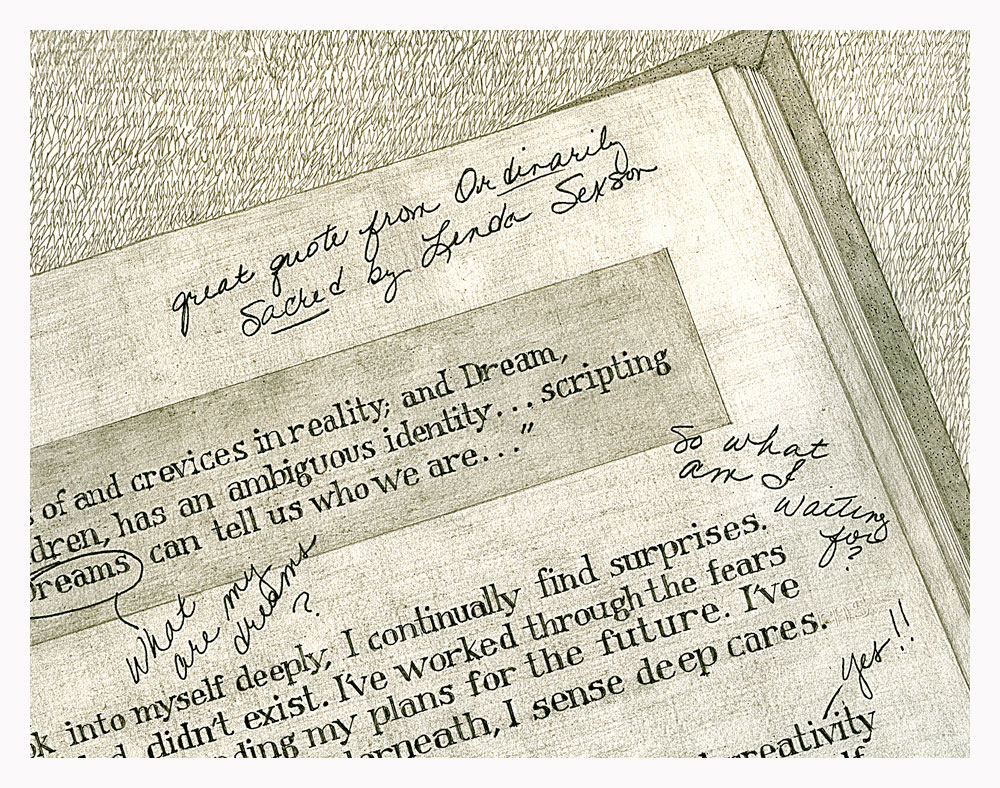 great quote from Ordinarily
Sacred by Linda Sexson
of and crevices in reality; and Dream,
dren, has an ambiguous identity... scripting
Dreams can tell us who we are..."
So what
am I
waiting
for
?
What
are my
dreams
?
into myself deeply, I continually find surprises.
didn't exist. I've worked through the fears
ding my plans for the future. I've
derneath, I sense deep cares.
yes!!
creativity